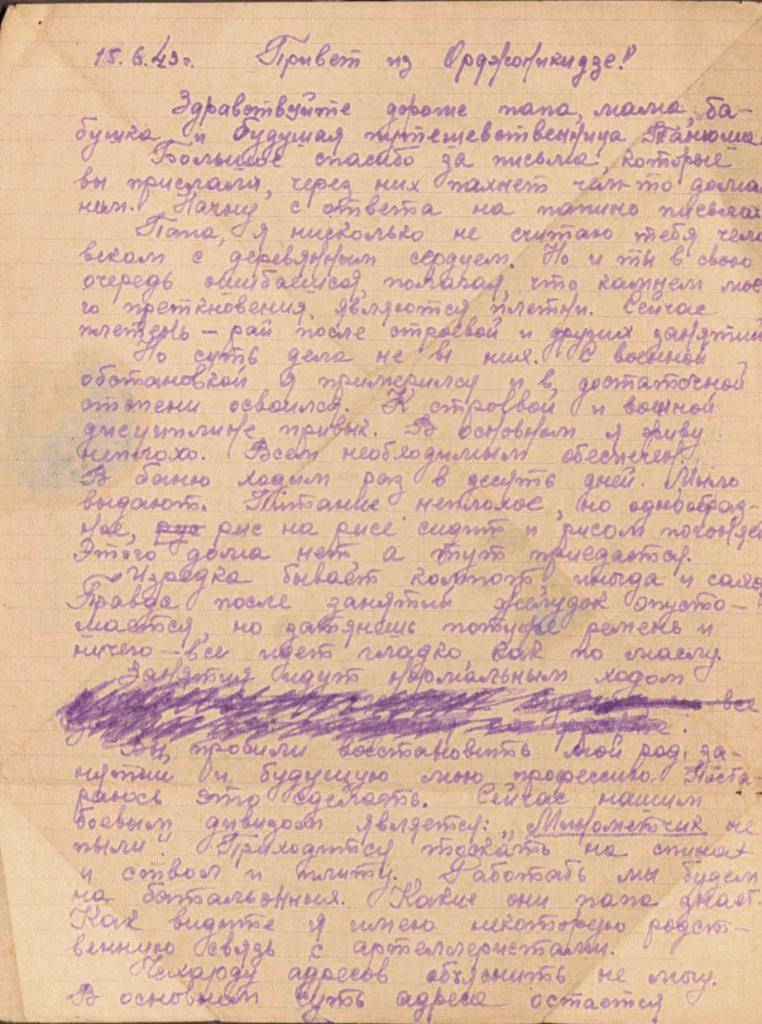 15.6.43г. Привет из Орджоникидзе!
Здравствуйте дорогие папа, мама, ба-
бушка и будущая путешественница Танюша.
Большое спасибо за письма, которые
вы прислали, через них пахнет чем-то домаш
ним. Начну с ответа на папино письмо.
Папа, я нисколько не считаю тебя чело
веком с деревянным сердцем. Но и ты в свою
очередь ошибаешься, полагая, что камнем мое
го преткновения, являются плетни. Сейчас
плетень – рай после строевой и других занятий
Но суть дела не в них. С военной
обстановкой я примирился и в достаточной
степени освоился. К строевой и военной
дисциплине привык. В основном я живу
неплохо. Всем необходимым обеспечен.
В баню ходим раз в десять дней. Мыло
выдают. Питание неплохое, но однообраз-
ное, рис на рисе сидит и рисом погоняет
Этого дома нет, а тут приедается.
Изредка бывает компот, иногда и сало
Правда после занятий желудок опусто-
шается, но затянешь потуже ремень и
ничего – все идет гладко как по маслу.
Занятия идут нормальным ходом
все
Вы просили восстановить мой род за-
нятий и будущую мою профессию. Поста-
раюсь это сделать. Сейчас нашим
боевым девизом является: „Минометчик не
пыли". Приходится таскать на спинах
и ствол и плиту. Работать мы будем
на батальонных. Какие они папа знает.
Как видите я имею некоторую родст-
венную связь с артиллеристами.
Чехарду адресов объяснить не могу.
В основном суть адреса остается